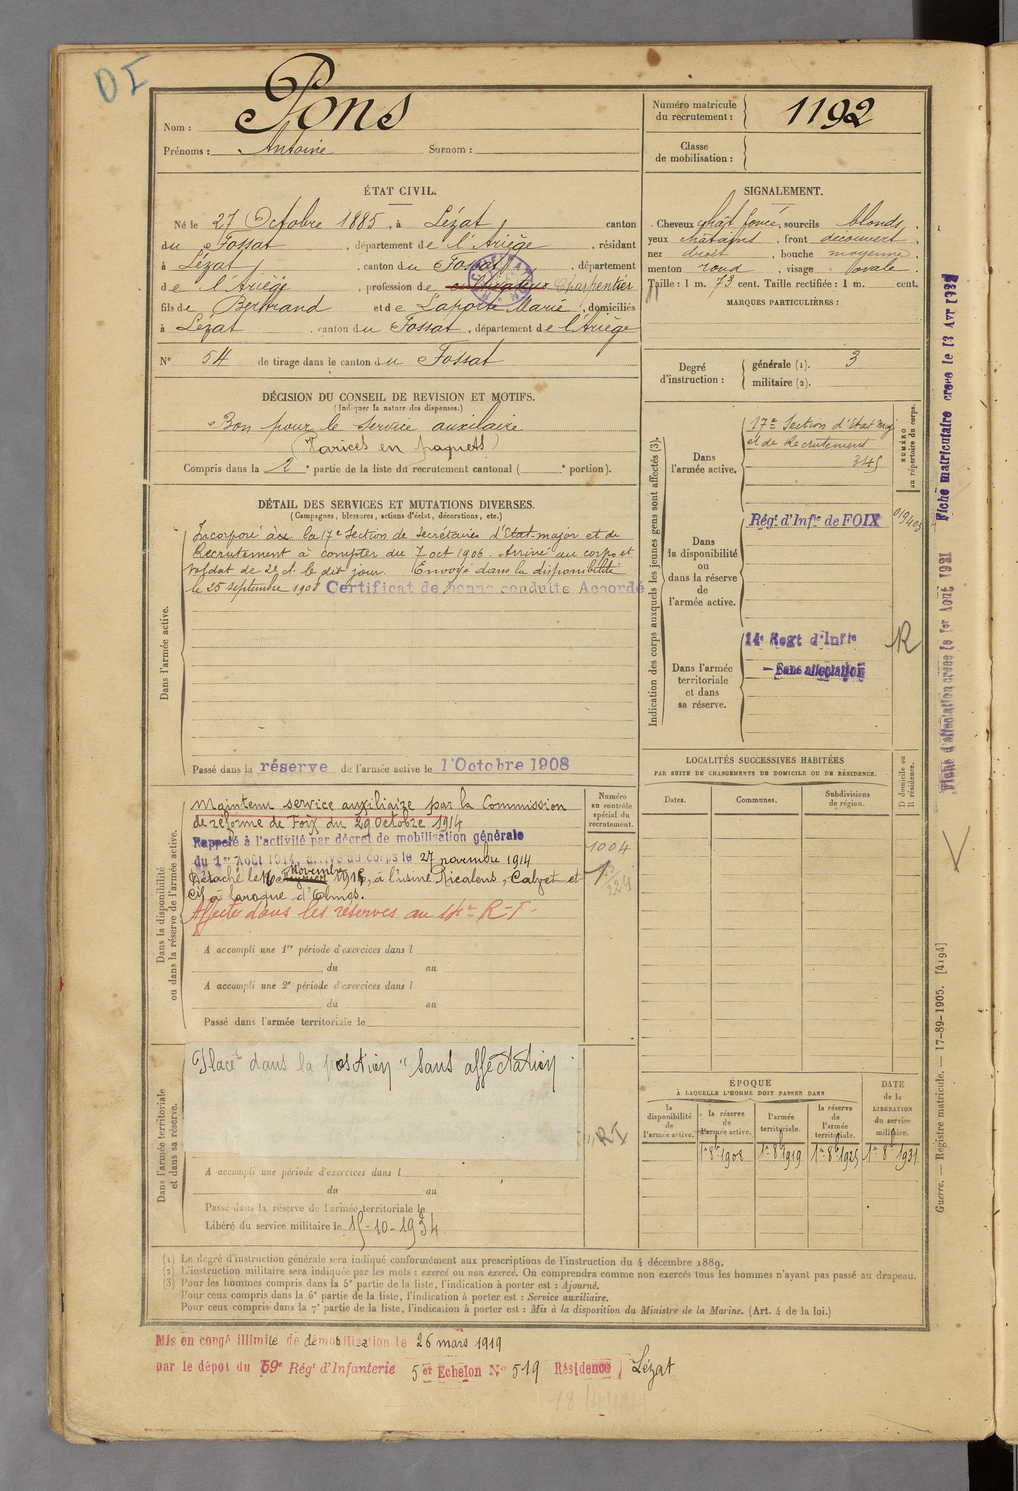 DI
Nom : Pons
Prénoms : Antoine Surnom :
Numéro matricule du recrutement : 1192
Classe de mobilisation :
ÉTAT CIVIL.
Né le 27 Octobre 1885, à Lézat, canton
du Fossat, département de l'Ariège, résidant
à Lézat, canton du Fossat, département
de l'Ariège, profession de Charpentier
fils de Bertrand et de Laporte Marie, domiciliés
à Lézat, canton du Fossat, département de l'Ariège
N° 54 de tirage dans le canton du Fossat
SIGNALEMENT.
Cheveux chât foncé, sourcils blonds,
yeux châtains, front découvert,
nez droit, bouche moyenne,
menton rond, visage ovale.
Taille : 1 m. 73 cent. Taille rectifiée : 1 m. cent.
MARQUES PARTICULIÈRES :
Degré d'instruction : générale (1). 3
militaire (2).
DÉCISION DU CONSEIL DE REVISION ET MOTIFS.
(Indiquer la nature des dispenses.)
Bon pour le service auxiliaire
(Varices en paquets)
Compris dans la 2e partie de la liste du recrutement cantonal ( e portion).
DÉTAIL DES SERVICES ET MUTATIONS DIVERSES.
(Campagnes, blessures, actions d'éclat, décorations, etc.)
Dans l'armée active.
Incorporé à la 17e Section de Secrétaires d'Etat-major et de
Recrutement à compter du 7 oct 1906. Arrivé au corps et
soldat de 2e cl. le dit jour. Envoyé dans la disponibilité
le 25 septembre 1908 Certificat de bonne conduite Accordé
Passé dans la réserve de l'armée active le 1 Octobre 1908
Indication des corps auxquels les jeunes gens sont affectés (3).
NUMÉRO au répertoire du corps.
Dans l'armée active.
17e Section d'Etat Maj
et de Recrutement
345
Dans la disponibilité ou dans la réserve de l'armée active.
Rég.t d'Inf.ie de FOIX
Dans l'armée territoriale et dans sa réserve.
14e Regt d'Infie
R
— Sans affectation
LOCALITÉS SUCCESSIVES HABITÉES
PAR SUITE DE CHANGEMENTS DE DOMICILE OU DE RÉSIDENCE.
D domicile ou R résidence.
Dates. Communes. Subdivisions de région.
Dans la disponibilité ou dans la réserve de l'armée active.
Numéro au contrôle spécial du recrutement.
Maintenu service auxiliaire par la Commission
de réforme de Foix du 29 Octobre 1914
Rappelé à l'activité par décret de mobilisation générale
du 1er Août 1914, arrivé au corps le 27 novembre 1914
1004
Détaché le 16 Novembre 1915, à l'usine Ricalens, Calvet et
Cie à Laroque d'Olmes.
Affecté dans les réserves au 14e R-T-
A accompli une 1re période d'exercices dans l
du au
A accompli une 2e période d'exercices dans l
du au
Passé dans l'armée territoriale le
Dans l'armée territoriale et dans sa réserve.
Placé dans la position "Sans affectation
RI
A accompli une période d'exercices dans l
du au
Passé dans la réserve de l'armée territoriale le
Libéré du service militaire le 15-10-1934
ÉPOQUE À LAQUELLE L'HOMME DOIT PASSER DANS
DATE de la LIBÉRATION du service militaire.
la disponibilité de l'armée active. la réserve de l'armée active. l'armée territoriale. la réserve de l'armée territoriale.
1er 8bre 1908 1er 8bre 1919 1er 8bre 1925 1er 8bre 1931
(1) Le degré d'instruction générale sera indiqué conformément aux prescriptions de l'instruction du 4 décembre 1889.
(2) L'instruction militaire sera indiquée par les mots : exercé ou non exercé. On comprendra comme non exercés tous les hommes n'ayant pas passé au drapeau.
(3) Pour les hommes compris dans la 5e partie de la liste, l'indication à porter est : Ajourné.
Pour ceux compris dans la 6e partie de la liste, l'indication à porter est : Service auxiliaire.
Pour ceux compris dans la 7e partie de la liste, l'indication à porter est : Mis à la disposition du Ministre de la Marine. (Art. 4 de la loi.)
Mis en congé illimité de démobilisation le 26 mars 1919
par le dépôt du 59e Rég.t d'Infanterie 5er Echelon N° 519 Résidence Lézat
Fiche matriculaire créée le 13 Avr 1932
Fiche d'affectation créée le 1er Août 1921
Guerre. — Registre matricule. — 17-89-1905. [4194]